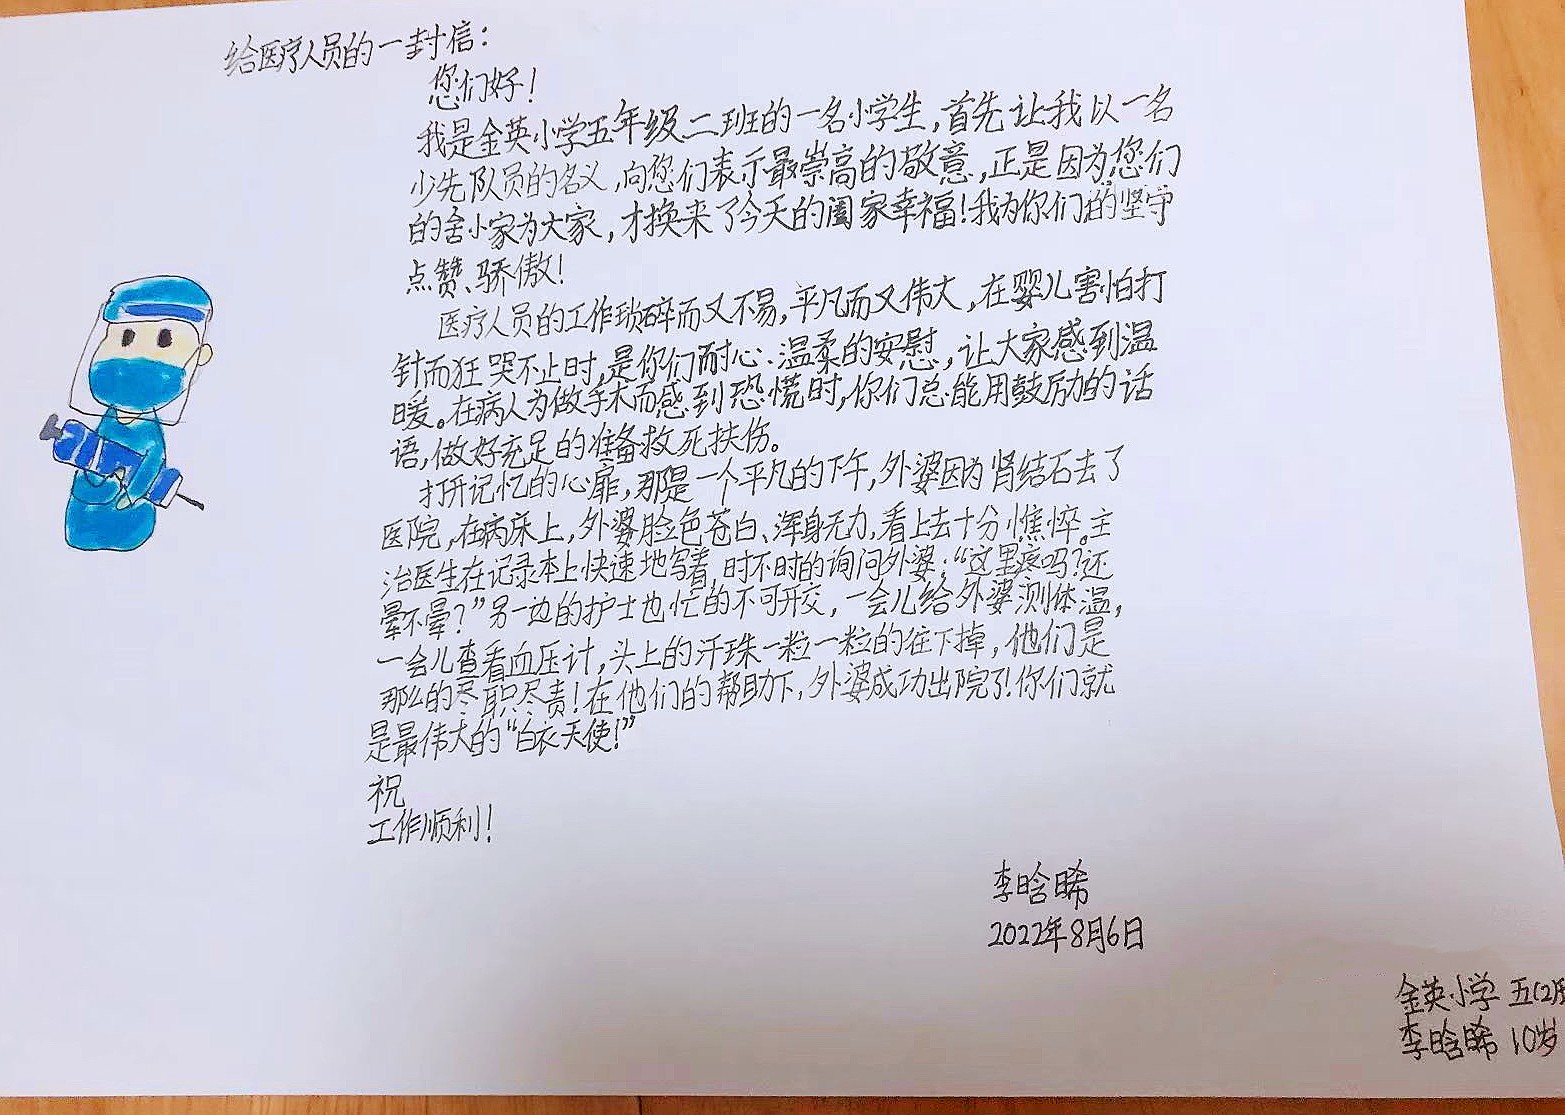 给医疗人员的一封信：
您们好！
我是金英小学五年级二班的一名小学生，首先让我以一名
少先队员的名义，向您们表示最崇高的敬意，正是因为您们
的舍小家为大家，才换来了今天的阖家幸福！我为你们的坚守
点赞、骄傲！
医疗人员的工作琐碎而又不易，平凡而又伟大，在婴儿害怕打
针而狂哭不止时，是你们耐心、温柔的安慰，让大家感到温
暖。在病人为做手术而感到恐慌时，你们总能用鼓励的话
语，做好充足的准备救死扶伤。
打开记忆的心扉，那是一个平凡的下午，外婆因为肾结石去了
医院，在病床上，外婆脸色苍白、浑身无力，看上去十分憔悴。主
治医生在记录本上快速地写着，时不时的询问外婆：“这里疼吗？还
晕不晕？”另一边的护士也忙的不可开交，一会儿给外婆测体温，
一会儿查看血压计，头上的汗珠一粒一粒的往下掉，他们是
那么的尽职尽责！在他们的帮助下，外婆成功出院了！你们就
是最伟大的“白衣天使！”
祝
工作顺利！
李晗晞
2022年8月6日
金英小学 五(2)班
李晗晞 10岁